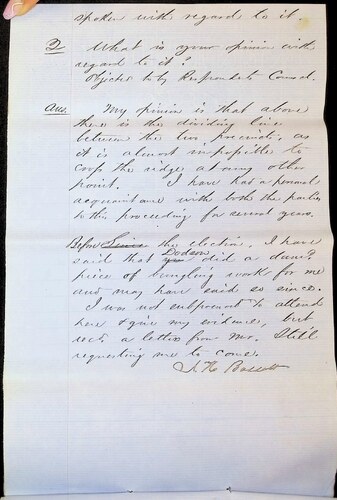 spoken with regard to it
Q What is your opinion with
regard to it?
Objected to by Respondents Counsel.
Ans. My opinion is that above
there is the dividing line
between the two precincts, as
it is almost impossible to
cross the ridge at any other
point. I have had a personal
acquaintance with both the parties
to this proceeding for several years.
Before Since the election, I have
said that Dodson did a
piece of bungling work for me
and may have said so since.
I was not subpoenad to attend
here & give my evidence, but
recd a letter from Mr.
requesting me to come.